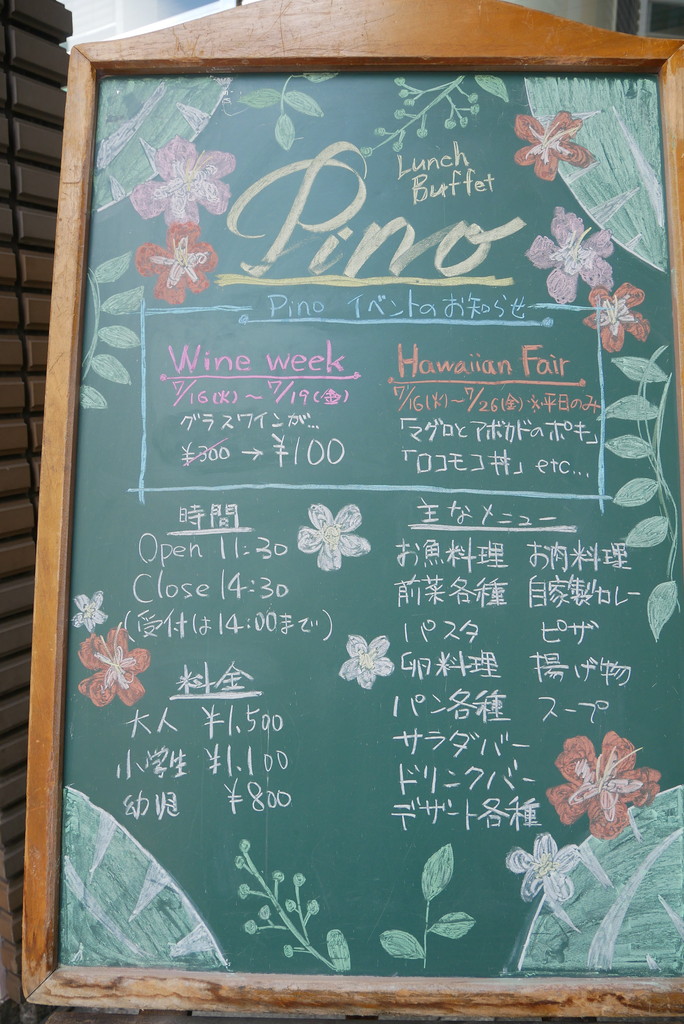 Lunch
Buffet
Pino
Pino イベントのお知らせ
Wine week
7/16(火)～7/19(金)
グラスワインが...
¥300 → ¥100
Hawaiian Fair
7/16(火)～7/26(金) ※平日のみ
「マグロとアボカドのポキ」
「ロコモコ丼」 etc...
時間
Open 11:30
Close 14:30
(受付は14:00まで)
料金
大人 ¥1,500
小学生 ¥1,100
幼児 ¥800
主なメニュー
お魚料理 お肉料理
前菜各種 自家製カレー
パスタ ピザ
卵料理 揚げ物
パン各種 スープ
サラダバー
ドリンクバー
デザート各種